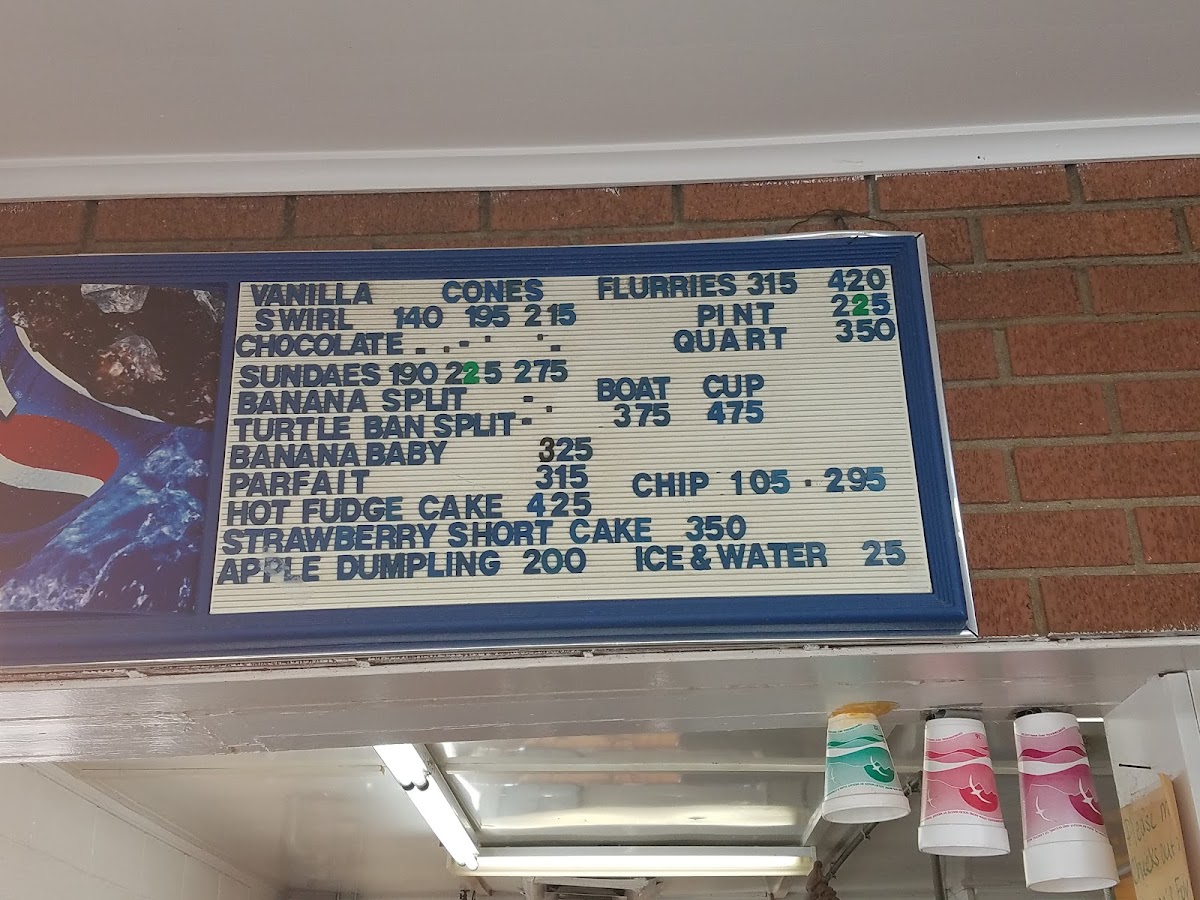 VANILLA CONES FLURRIES 315 420
SWIRL 140 195 215 PINT 225
CHOCOLATE QUART 350
SUNDAES 190 225 275
BANANA SPLIT BOAT CUP
TURTLE BAN SPLIT 375 475
BANANA BABY 325
PARFAIT 315 CHIP 105 · 295
HOT FUDGE CAKE 425
STRAWBERRY SHORT CAKE 350
APPLE DUMPLING 200 ICE & WATER 25
Please